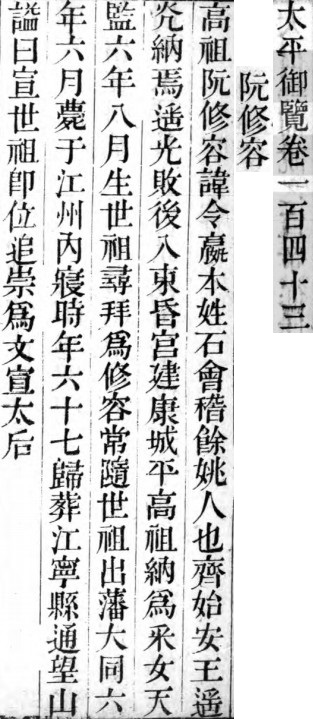 太平御覽卷一百四十三
阮修容
高祖阮修容諱令嬴本姓石會稽餘姚人也齊始安王遥
光納焉遥光敗後入東昏宮建康城平高祖納爲采女天
監六年八月生世祖尋拜爲修容常隨世祖出藩大同六
年六月薨于江州內寢時年六十七歸葬江寧縣通望山
謚曰宣世祖卽位追崇爲文宣太后